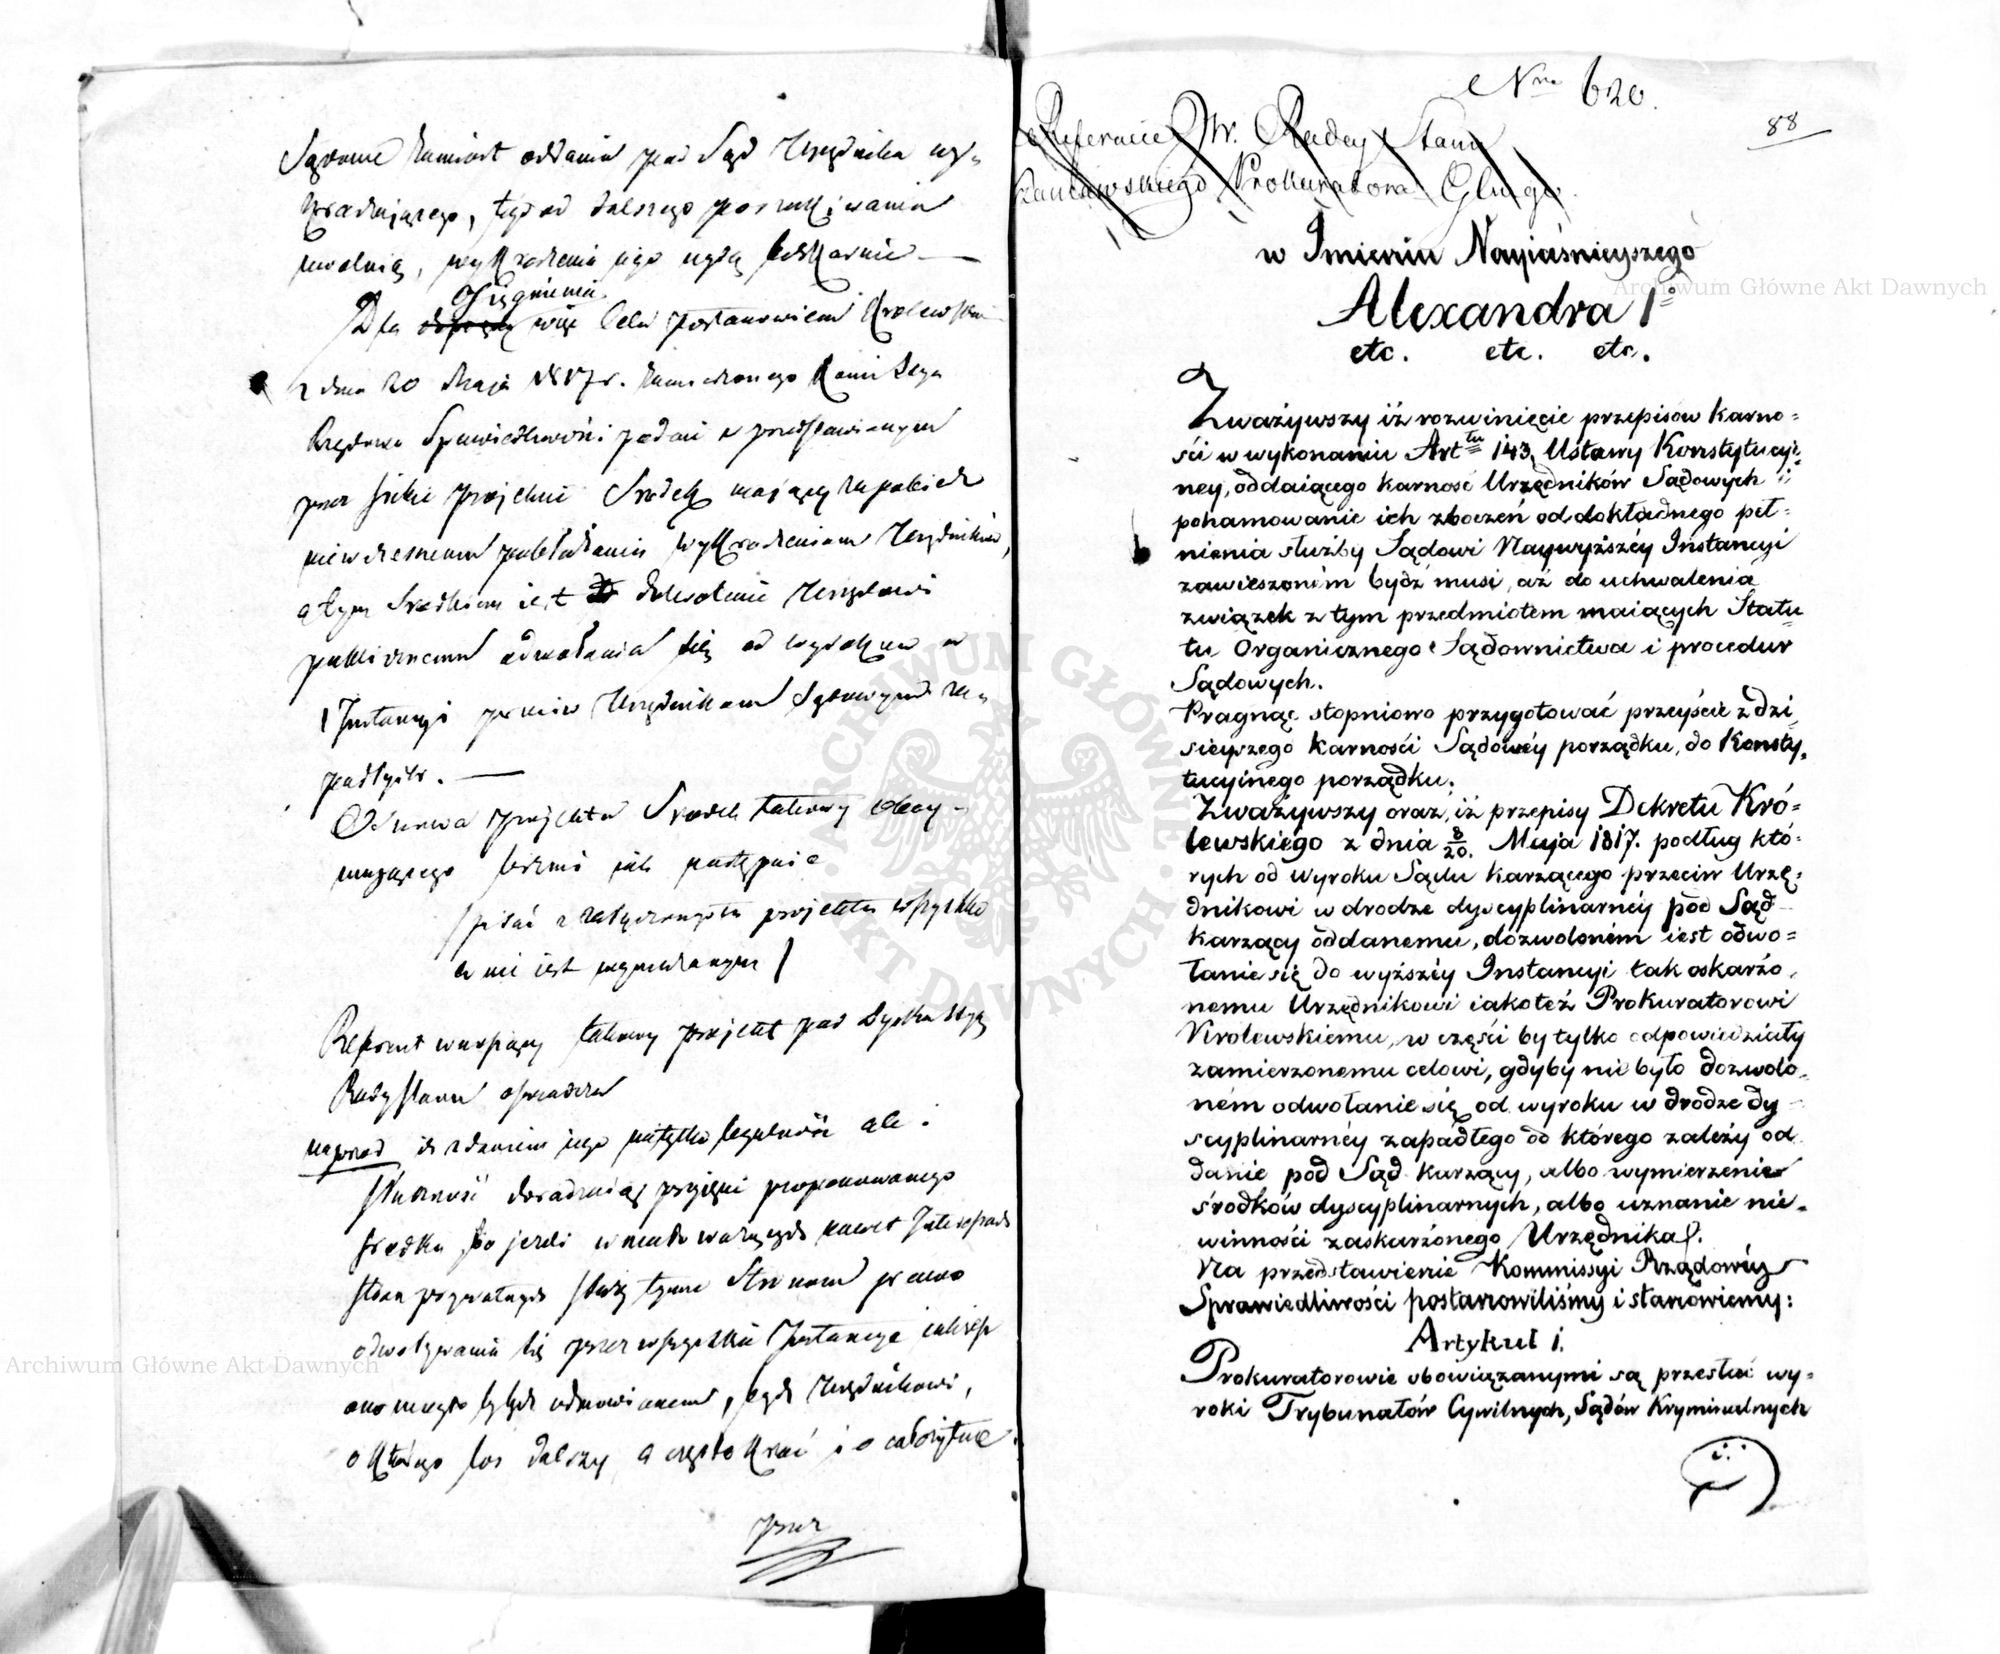 Sądowe zamiast oddania pod Sąd Urzędnika wy-
kraczającego, tegoż od dalszego poszukiwania
uwolnią, wykroczenia jego ujdą bezkarnie —
Dla osiągnienia więc celu postanowieniem Królewskim
z dnia 20 Maja 1817 r. zamierzonego Kommissya
Rządowa Sprawiedliwości podaie w przedstawionym
przez siebie projekcie Środek mający zapobiedz
niewczesnemu pobłażaniu wykroczeniom Urzędników,
a tym środkiem iest dozwolenie Urzędowi
publicznemu odwołania się od wyroków w
1 Instancyi przeciw Urzędnikom Sądowym za-
padłych. —
Osnowa projektu Środek takowy obey-
mującego brzmi jak następuie
/pisać z załączonego tu projektu wszystko
co nie iest wymazanym/
Referent wnoszący takowy projekt pod Dyskussyą
Rady Stanu oświadcza
naprzód iż zdaniem jego nie tylko legalność ale i
słuszność doradzaią przyjęcie proponowanego
środka bo jeżeli w mało ważnych nawet Interessach
stron prywatnych służy tymże Stronom prawo
odwoływania się przez wszystkie Instancye
ono mogło bydź odmówionem, bądź Urzędnikowi,
o którego los dalszy, a częstokroć i o całożycie
przez
Nro 620.
88
Referacie JW. Radcy Stanu
Prokuratora Glnego.
w Imieniu Nayiaśnieyszego
Alexandra 1o
etc. etc. etc.
Zważywszy iż rozwinięcie przepisów karno=
ści w wykonaniu Arttu 143, Ustawy Konstytucyi=
ney, oddaiącego karność Urzędników Sądowych i
pohamowanie ich zboczeń od dokładnego peł=
nienia służby Sądowi Naywyższéy Instancyi
zawieszoném bydź musi, aż do uchwalenia
związek z tym przedmiotem maiących Statu=
tu Organicznego Sądownictwa i procedur
Sądowych.
Pragnąc stopniowo przygotować przeyście z dzi
sieyszego karności Sądowéy porządku, do Konsty,
tucyinego porządku.
Zważywszy oraz, iż przepisy Dekretu Kró=
lewskiego z dnia 8/20. Maja 1817. podług któ=
rych od wyroku Sądu karzącego przeciw Urzę=
dnikowi w drodze dyscyplinarnéy pod Sąd
karzący oddanemu, dozwoloném iest odwo=
łanie się do wyższéy Instancyi tak oskarżo,
nemu Urzędnikowi iakoteż Prokuratorowi
Krolewskiemu, w części by tylko odpowiedziały
zamierzonemu celowi, gdyby nie było dozwolo,
ném odwołanie się od wyroku w drodze dy
scyplinarnéy zapadłego od którego zależy od
danie pod Sąd karzący, albo wymierzenie
środków dyscyplinarnych, albo uznanie nie=
winności zaskarżonego Urzędnika.
Na przedstawienie Kommissyi Rządowéy
Sprawiedliwości postanowiliśmy i stanowiemy:
Artykuł 1.
Prokuratorowie obowiązanymi są przesłać wy=
roki Trybunałów Cywilnych, Sądów Kryminalnych
Archiwum Główne Akt Dawnych
Archiwum Główne Akt Dawnych
ARCHIWUM GŁÓWNE · AKT DAWNYCH ·